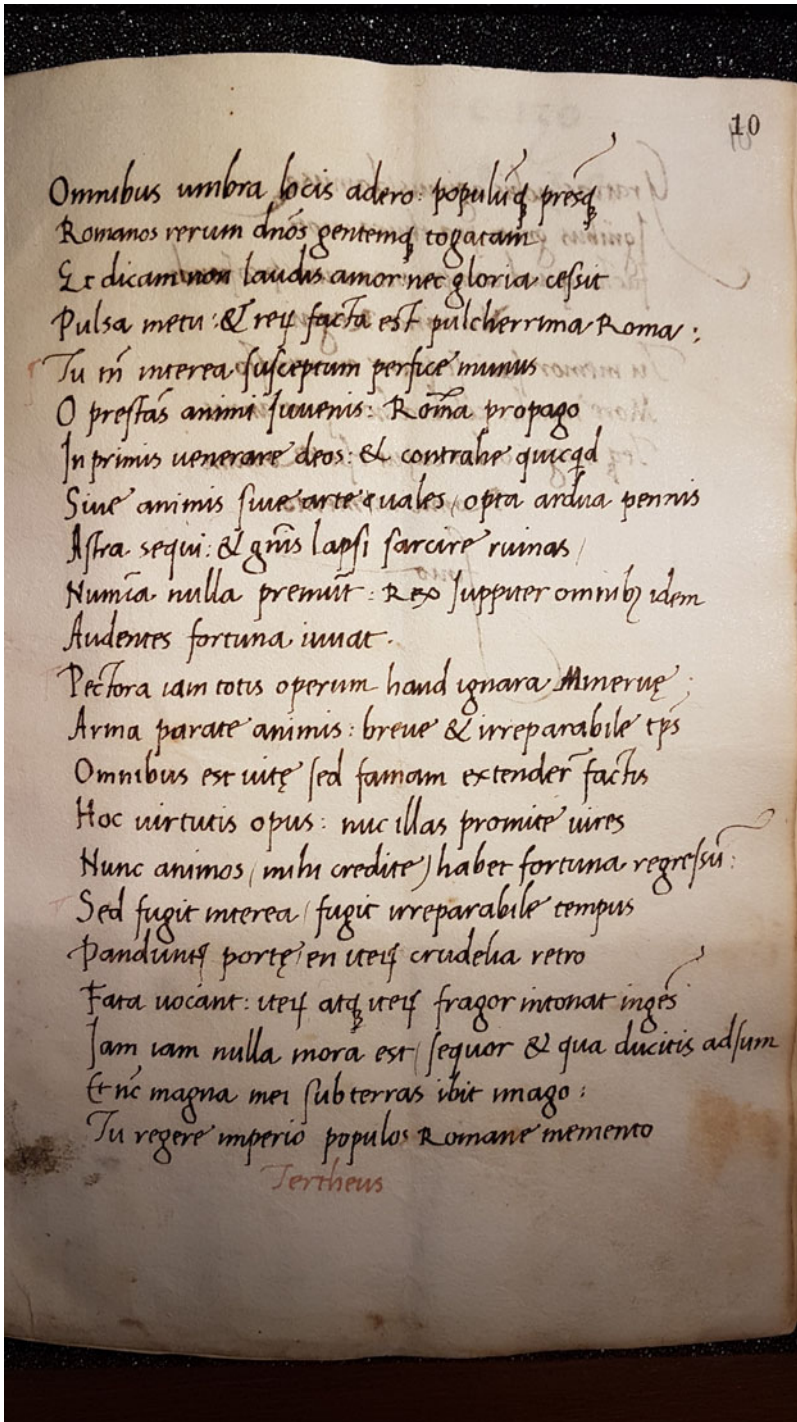 10
Omnibus umbra locis adero: populūq̨ presq̨
Romanos rerum dnōs gentemq̨ togatam
Et dicam non laudis amor nec gloria cessit
Pulsa metu: & reꝝ facta est pulcherrima Roma:
Tu tn̄ interea susceptum perfice munus
O prestās animi Iuvenis: Romāa propago
In primis uenerare deos: & contrahe quicqd
Siue animis siue arte uales, opta ardua pennis
Astra sequi: & gn̄is lapsi sarcire ruinas /
Numīa nulla premūt: Rex Iuppiter omnibꝫ idem
Audentes fortuna iuuat.
Pectora iam totis operum haud ignara Mineruę;
Arma parate animis: breue & irreparabile tp̄s
Omnibus est uitę sed famam extender̄ factis
Hoc uirtutis opus: nūc illas promite uires
Nunc animos (mihi credite) habet fortuna regressū:
Sed fugit interea / fugit irreparabile tempus
Pandunt᷒ portę en iteꝝ crudelia retro
Fata uocant: iteꝝ atq̨ iteꝝ fragor intonat ingēs
Iam iam nulla mora est / sequor & qua ducitis adsum
Et nc̄ magna mei sub terras ibit imago:
Tu regere imperio populos Romane memento
Tertheus